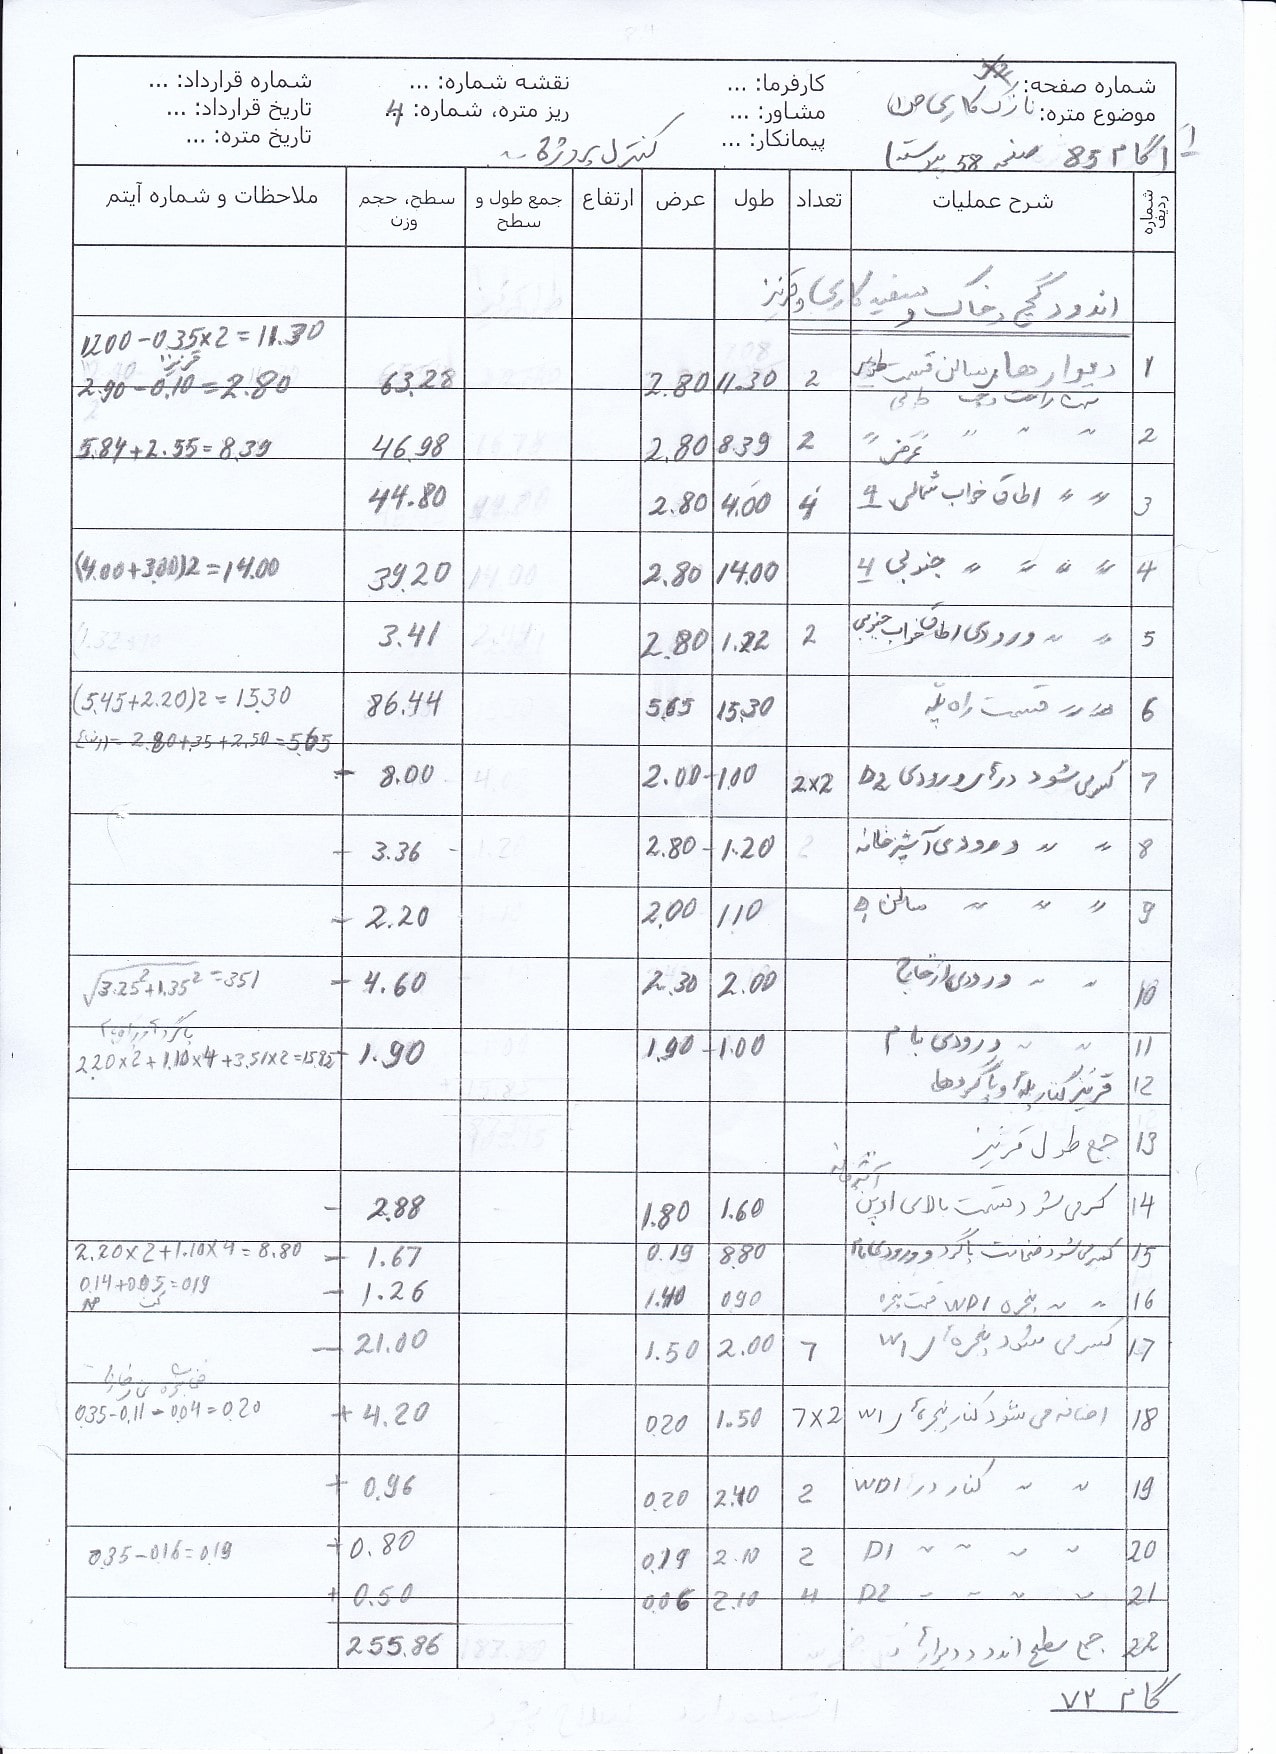 شماره صفحه:
موضوع متره: نازک کاری
کارفرما: ...
مشاور: ...
پیمانکار: ...
نقشه شماره: ...
ریز متره، شماره: 4
شماره قرارداد: ...
تاریخ قرارداد: ...
تاریخ متره: ...
(گام 85 صفحه 58
کنترل پروژه
شماره ردیف شرح عملیات تعداد طول عرض ارتفاع جمع طول و سطح سطح، حجم وزن ملاحظات و شماره آیتم
اندود گچ و خاک و سفید کاری و قرنیز
1200 - 0.35×2 = 11.30
قرنیز
1 دیوارها سالن قسمت طولی 2 11.30 2.80 63.28 2.90 - 0.10 = 2.80
2 〃 〃 〃 عرض 〃 2 8.39 2.80 46.98 5.84 + 2.55 = 8.39
3 〃 〃 اطاق خواب شمالی 4 4.00 2.80 44.80
4 〃 〃 〃 〃 جنوبی 14.00 2.80 39.20 (4.00+3.00)2 = 14.00
5 〃 〃 ورودی اطاق خواب جنوبی 2 1.22 2.80 3.41
6 〃 〃 قسمت راه پله 15.30 5.65 86.44 (5.45+2.20)2 = 15.30
(ارتفاع) = 2.80+.35+2.50 = 5.65
7 کسر می شود درهای ورودی D2 2×2 1.00 2.00 - 8.00
8 〃 〃 ورودی آشپزخانه 1.20 2.80 - 3.36
9 〃 〃 〃 سالن 1.10 2.00 - 2.20
10 〃 〃 ورودی از خارج 2.00 2.30 - 4.60 √3.25²+1.35² = 3.51
11 〃 〃 ورودی بام 1.00 1.90 - 1.90 2.20×2 + 1.10×4 + 3.51×2 = 15.82
12 قرنیز کنار پله و پاگردها
13 جمع طول قرنیز
آشپزخانه
14 کسر می شود قسمت بالای اوپن 1.60 1.80 - 2.88
15 کسر می شود ضخامت پاگرد و ورودی بام 8.80 0.19 - 1.67 2.20×2+1.10×4 = 8.80
16 〃 〃 پنجره WD1 قسمت پنجره 0.90 1.40 - 1.26 0.14+0.05 = 0.19
17 کسر می شود پنجره های W1 7 2.00 1.50 - 21.00
18 اضافه می شود کنار پنجره های W1 7×2 1.50 0.20 + 4.20 0.35-0.11-0.04 = 0.20
19 〃 〃 کنار در WD1 2 2.40 0.20 + 0.96
20 〃 〃 〃 〃 D1 2 2.10 0.19 + 0.80 0.35-0.16 = 0.19
21 〃 〃 〃 〃 D2 4 2.10 0.06 + 0.50
22 جمع سطح اندود دیوارها 255.86
گام ۷۲